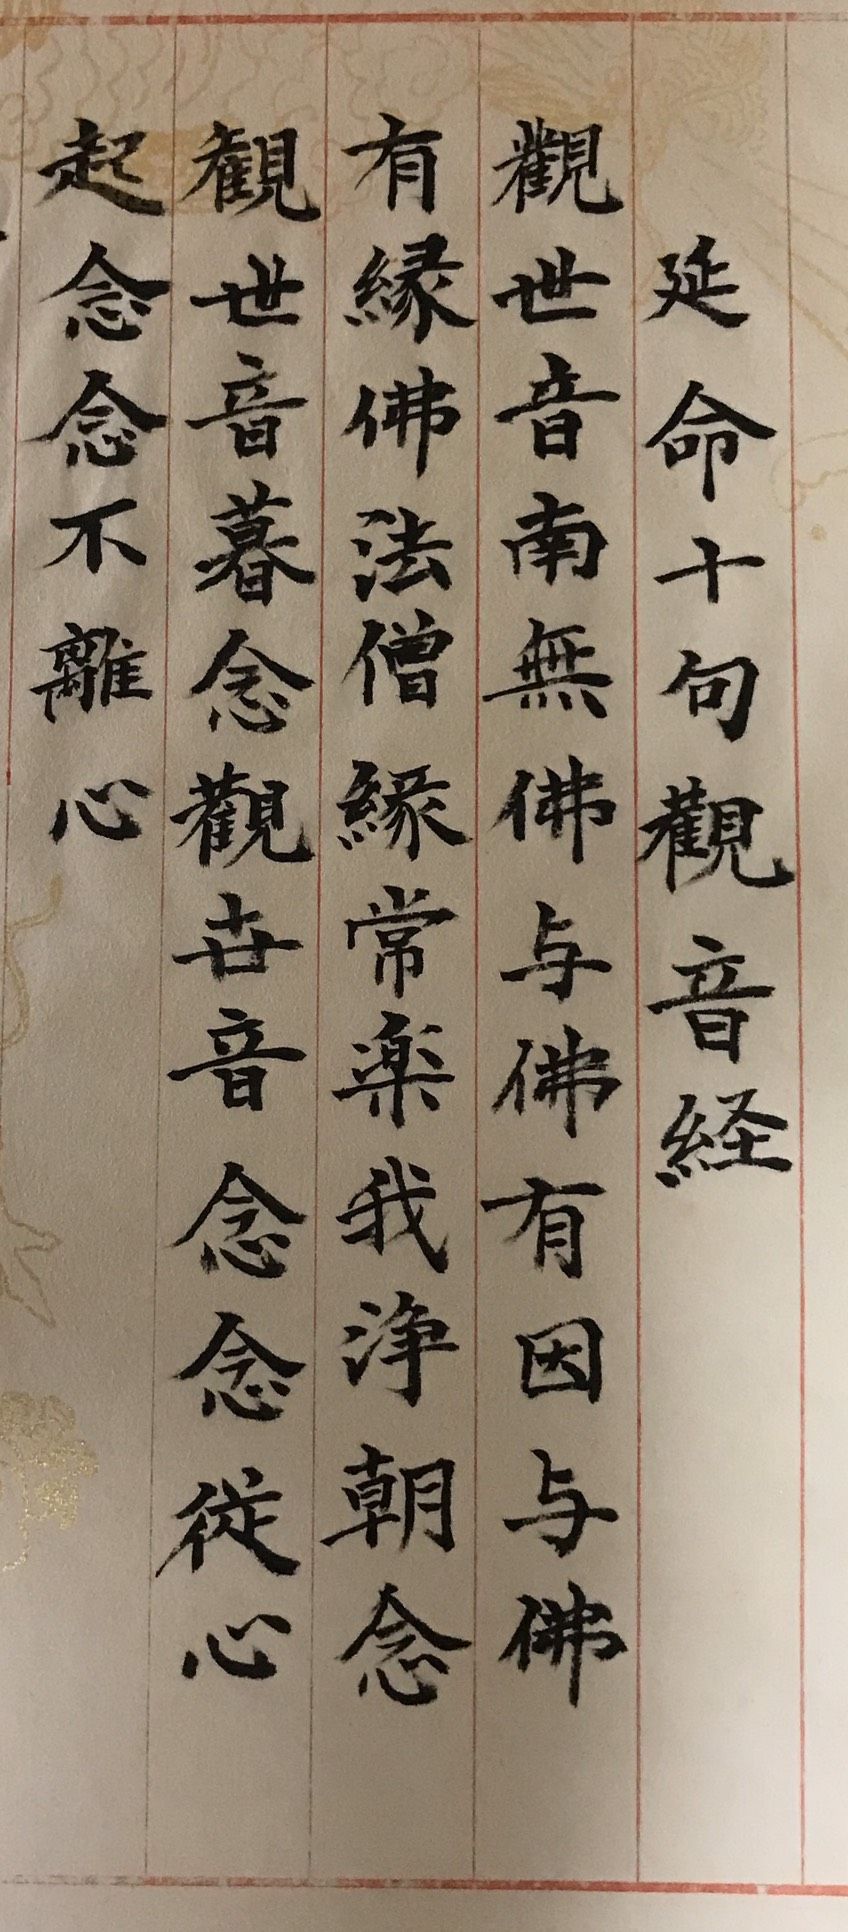 延命十句觀音経
觀世音南無佛与佛有因与佛
有縁佛法僧縁常楽我浄朝念
観世音暮念觀世音念念従心
起念念不離心